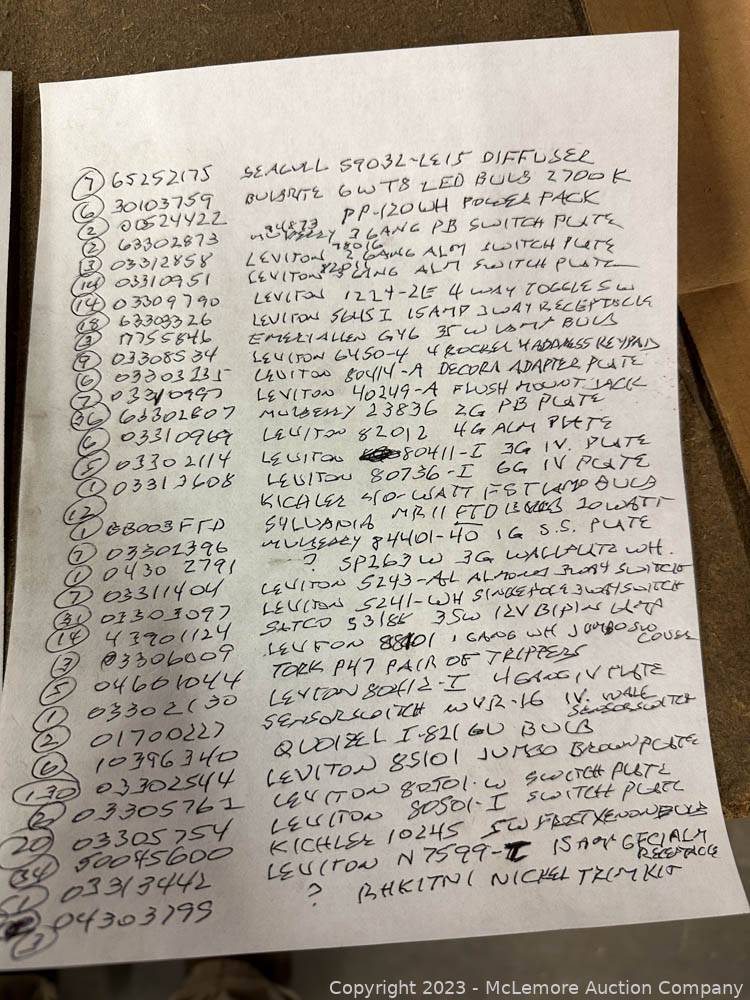 7 65252175 SEAGULL 59032-LE15 DIFFUSER
6 30103759 BULBRITE 6WT8 LED BULB 2700K
2 01524422 PP-120WH POWER PACK
2 63302873 MULBERRY 84873 3 GANG PB SWITCH PLATE
3 03312858 LEVITON 78016 2 GANG ALM SWITCH PLATE
14 03310951 LEVITON 82011 3 GANG ALM SWITCH PLATE
14 03309790 LEVITON 1224-2E 4 WAY TOGGLE SW
18 63303326 LEVITON 5645I 15AMP 3WAY RECEPTACLE
3 17755846 EMERYALLEN GY6 35W LAMP BULB
9 03308534 LEVITON 6450-4 4 ROCKER 4 ADDRESS KEYPAD
6 LEVITON 80414-A DECORA ADAPTER PLATE
7 LEVITON 40249-A FLUSH MOUNT JACK
36 63302807 MULBERRY 23836 2G PB PLATE
6 03310969 LEVITON 82012 4G ALM PLATE
5 03302114 LEVITON 80411-I 3G IV. PLATE
1 03312608 LEVITON 80736-I 6G IV PLATE
12 KICHLER 40-WATT FST LAMP BULB
1 BB003FTD SYLVANIA MR11 FTD 20WATT
7 03301396 MULBERRY 84401-40 1G S.S. PLATE
1 0430 2791 ? SP263W 3G WALLPLATE WH.
7 03311404 LEVITON 5243-AL ALMOND 3WAY SWITCH
31 03303097 LEVITON 5241-WH SINGLEPOLE 3WAY SWITCH
14 43901124 SATCO S3186 35W 12V BIPIN LAMP
3 03306009 LEVITON 88101 1 GANG WH JUMBO SW COVER
5 04601044 TORK P47 PAIR OF TRIPPERS
1 03302130 LEVITON 80412-I 4 GANG IV PLATE
2 01700227 SENSORSWITCH WVR-16 IV. WALL SENSORSWITCH
6 10396340 QUOIZEL I-821 GU BULB
130 03302544 LEVITON 85101 JUMBO BROWN PLATE
2 03305761 LEVITON 80501-W SWITCH PLATE
20 03305754 LEVITON 80501-I SWITCH PLATE
34 50045600 KICHLER 10245 5W FROST XENON BULB
1 03313442 LEVITON N7599-I 15AMP GFCI ALM RECEPTACLE
3 04303799 ? BHKITN1 NICKEL TRIM KIT
Copyright 2023 - McLemore Auction Company